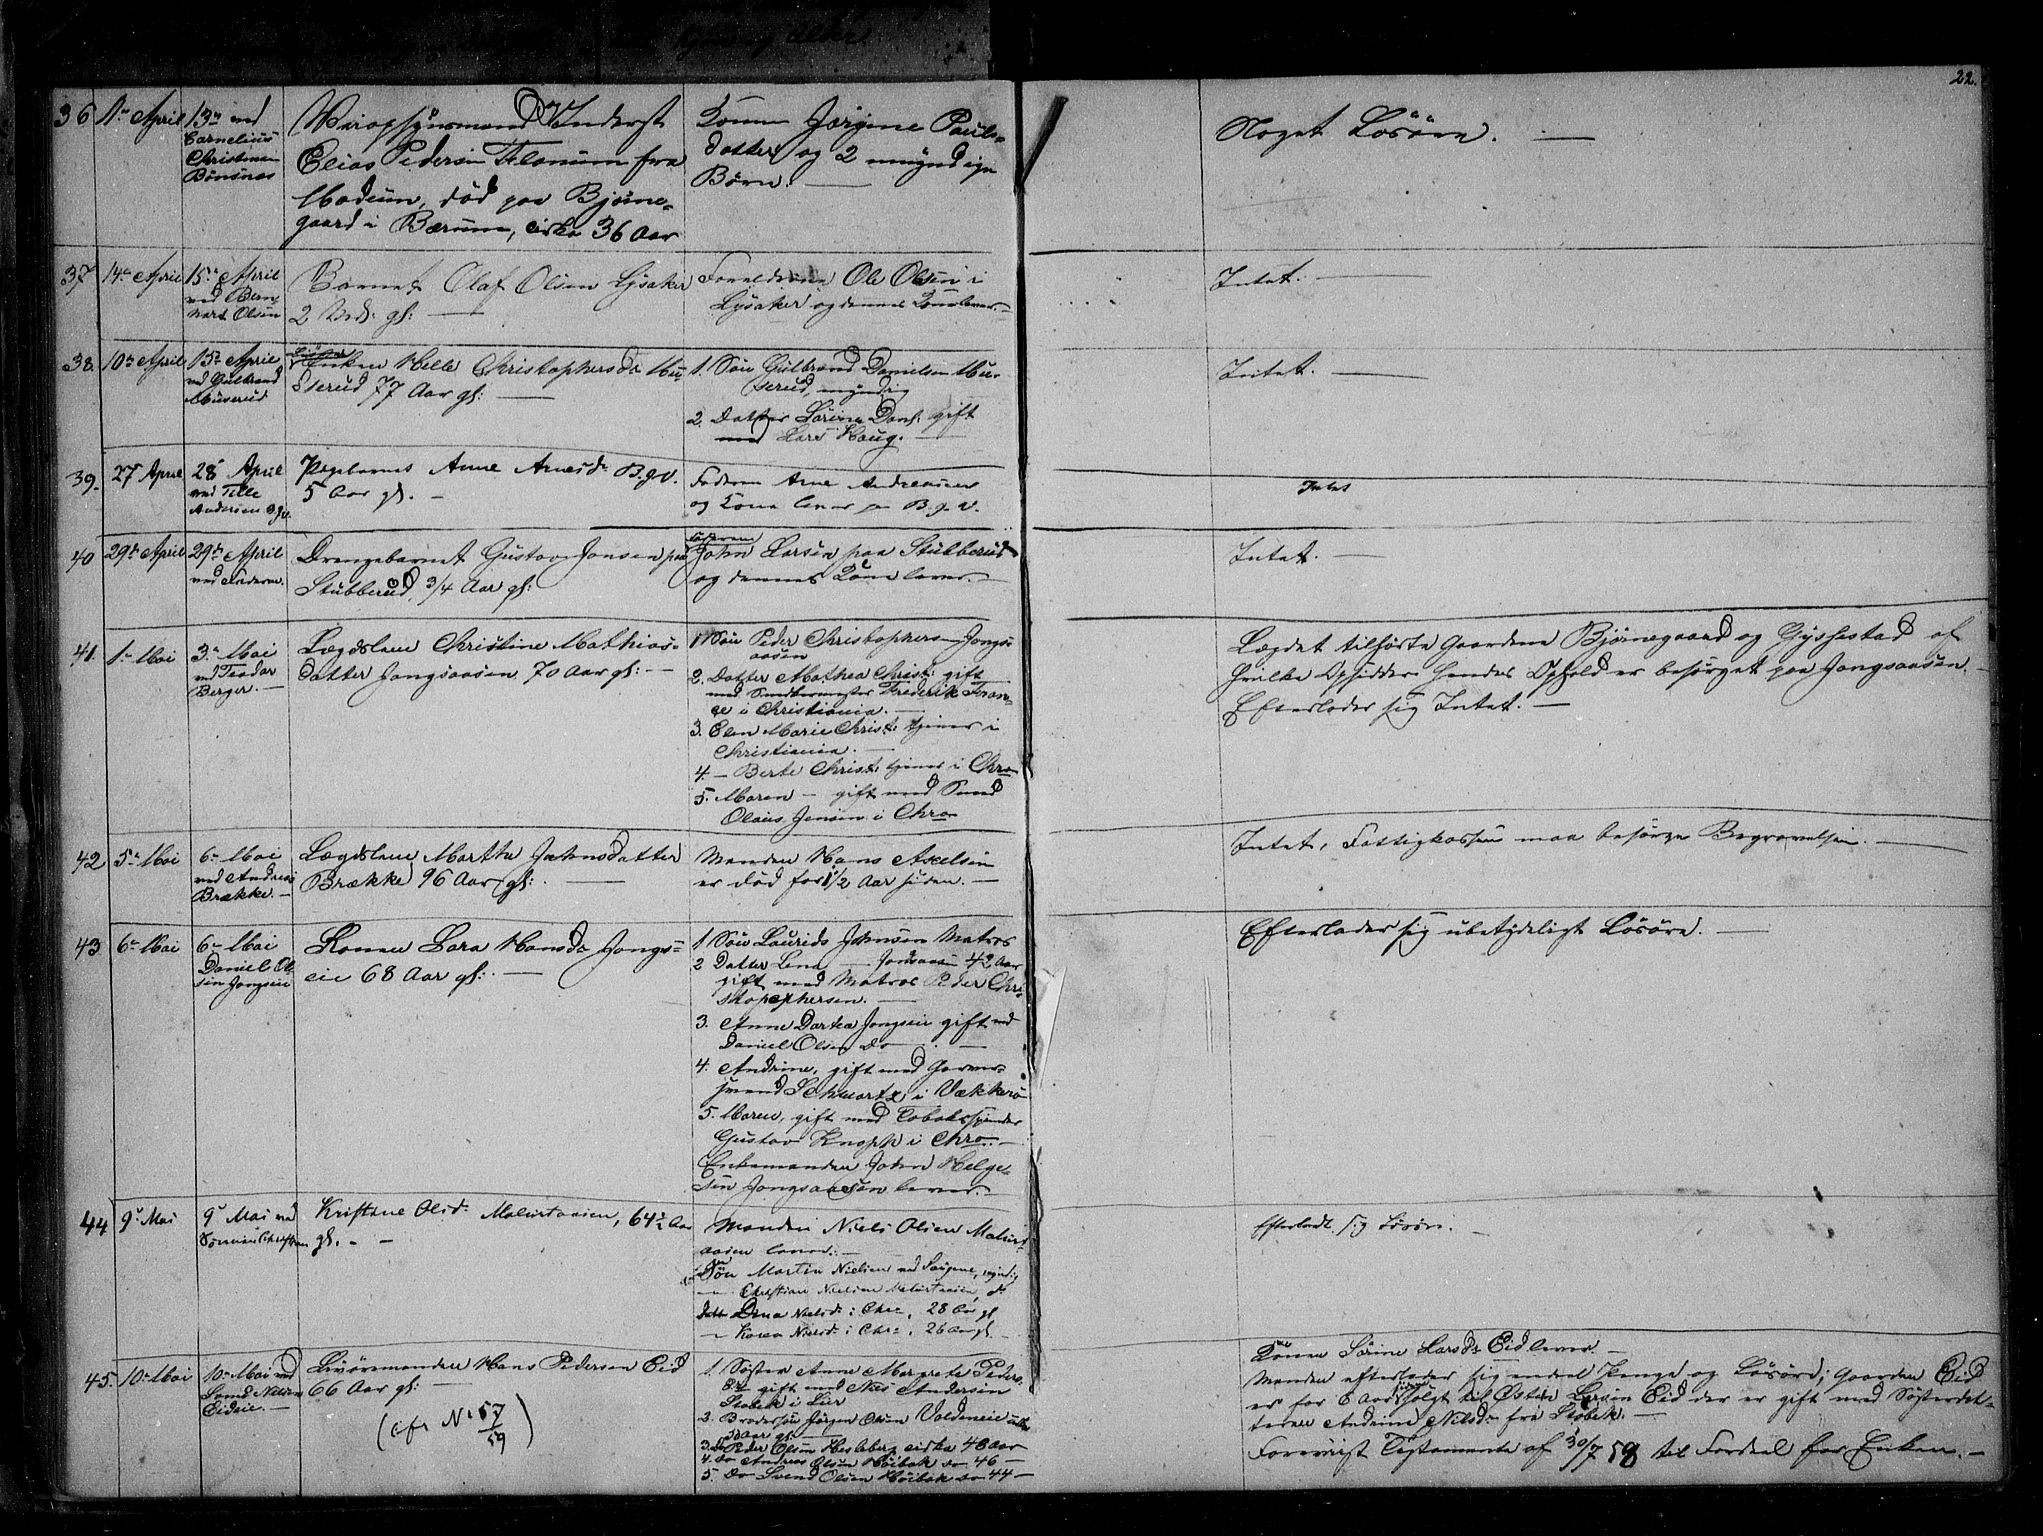 22.
36 1ste April 13de ved
Cornelius
Christensen
Bonsnæs
Elias Pedersen fra
Modum, død paa Bjørne-
gaard i Bærum, cirka 36 Aar
Konen Jørgine Pauls-
datter og 2 umyndige
Børn. —
Noget Løsøre. —
37 14de April 15de April
ved Bern-
hart Olsen
Barnet Olaf Olsen Lysaker
2 Md: gl: —
Forældrene Ole Olsen i
Lysaker og dennes Kone lever. —
Intet. —
38. 10de April 15de April
ved Gulbrand
Muserud
Enken Helle Christophersdr Mu-
serud 77 Aar gl: —
1. Søn Gulbrand Danielsen Mu-
serud, myndig
2. Datter Larine Danl: gift
med Lars Haug. —
Intet. —
39. 27 April 28 April
ved Tolle
Andersen B.g.V.
Pigebarnet Anne Arnesdr B.g.V.
5 Aar gl. —
Faderen Arne Andreassen
og Kone lever pa B.g.V.
Intet
40 29de April 29de April
ved Faderen.
Drengebarnet Gustav Jonsen paa
Stubberud, 3/4 Aar gl:
Faderen
John Larsen paa Stubberud
og dennes Kone lever. —
Intet. —
41. 1ste Mai 3die Mai
ved Teodor
Berger. —
Lægdslem Christine Mathias-
datter Jongsaasen, 70 Aar gl: —
1 Søn Peder Christophersen Jongs-
aasen
2. Datter Mathea Christ: gift
med Frederik Fran-
ge i Christiania. —
3. Elen Marie Christ: tjener i
Christiania. —
4. — Berte Christ: tjener i Chra
5. Maren — gift med Smed
Olaus Jensen i Chra
Lægdet tilhørte Gaardene Bjørnegaard og Gyssestad af
hvilke Opsiddere hendes Ophold er besørget paa Jongsaasen.
Efterlader sig Intet. —
42 5te Mai 6te Mai
ved Andreas
Brække. —
Lægdslem Marthe Johnsdatter
Brække 96 Aar gl: —
Manden Hans Axelsen
er død for 1 1/2 Aar siden. —
Intet, Fattigkassen maa besørge Begravelsen. —
43 6te Mai 6te Mai
Daniel Ol-
sen Jongseie
Konen Lara Hansdr Jongs-
eie 68 Aar gl: —
1 Søn Laurids Johnsen Matros
2 Datter Lena — Jongsaasen 42 Aar
gift med Matros Peder Chri-
stopephersen. —
3. Anne Dortea Jongseie gift med
Daniel Olsen do —
4. Andrine, gift med Garver-
svend Schwartz i Vækkerø
5. Maren, gift med Tobakspinder
Gustav Knoph i Chra. —
Enkemanden John Helge-
sen Jongsaasen lever. —
Efterlader sig ubetydeligt Løsøre. —
44 9de Mai 9de Mai ved
Kristiane Olsd: 64 1/2 Aar
gl. —
Manden Niels Olsen
lever. —
Søn Martin Nielsen myndig
— Christian Nielsen do
Datt Dina Nielsd: i Chra, 28 Aar gl.
— Karen Nielsd: i Chra, 26 Aar gl. —
Efterladt sig Løsøre.
45. 10de Mai 10de Mai ved
Eideie. —
Hans Pedersen Eid
66 Aar gl: —
(cfr No 57/59)
1. Søster Anne Margrete Peders-
dr gift med Nils Andersen
Stobek i Lier
2. Brodersøn Jørgen Olsen
Aar gl: —
3. Do Peder Olsen Hesleberg cirka 48 Aar
4. Do Andreas Olsen Høibak do 46 —
5. Do Svend Olsen Høibak do 44 —
Konen Sørine Larsdr Eid lever. —
Manden efterlader sig endel Penge og Løsøre; Gaarden Eid
er for 6 Aar siden solgt til Østen Larsen Eid der er gift med Søsterdat-
teren Andrine Nilsdr fra Stobek. —
Forøvrigt Testamente af 30/7 58 til Fordel for Enken. —